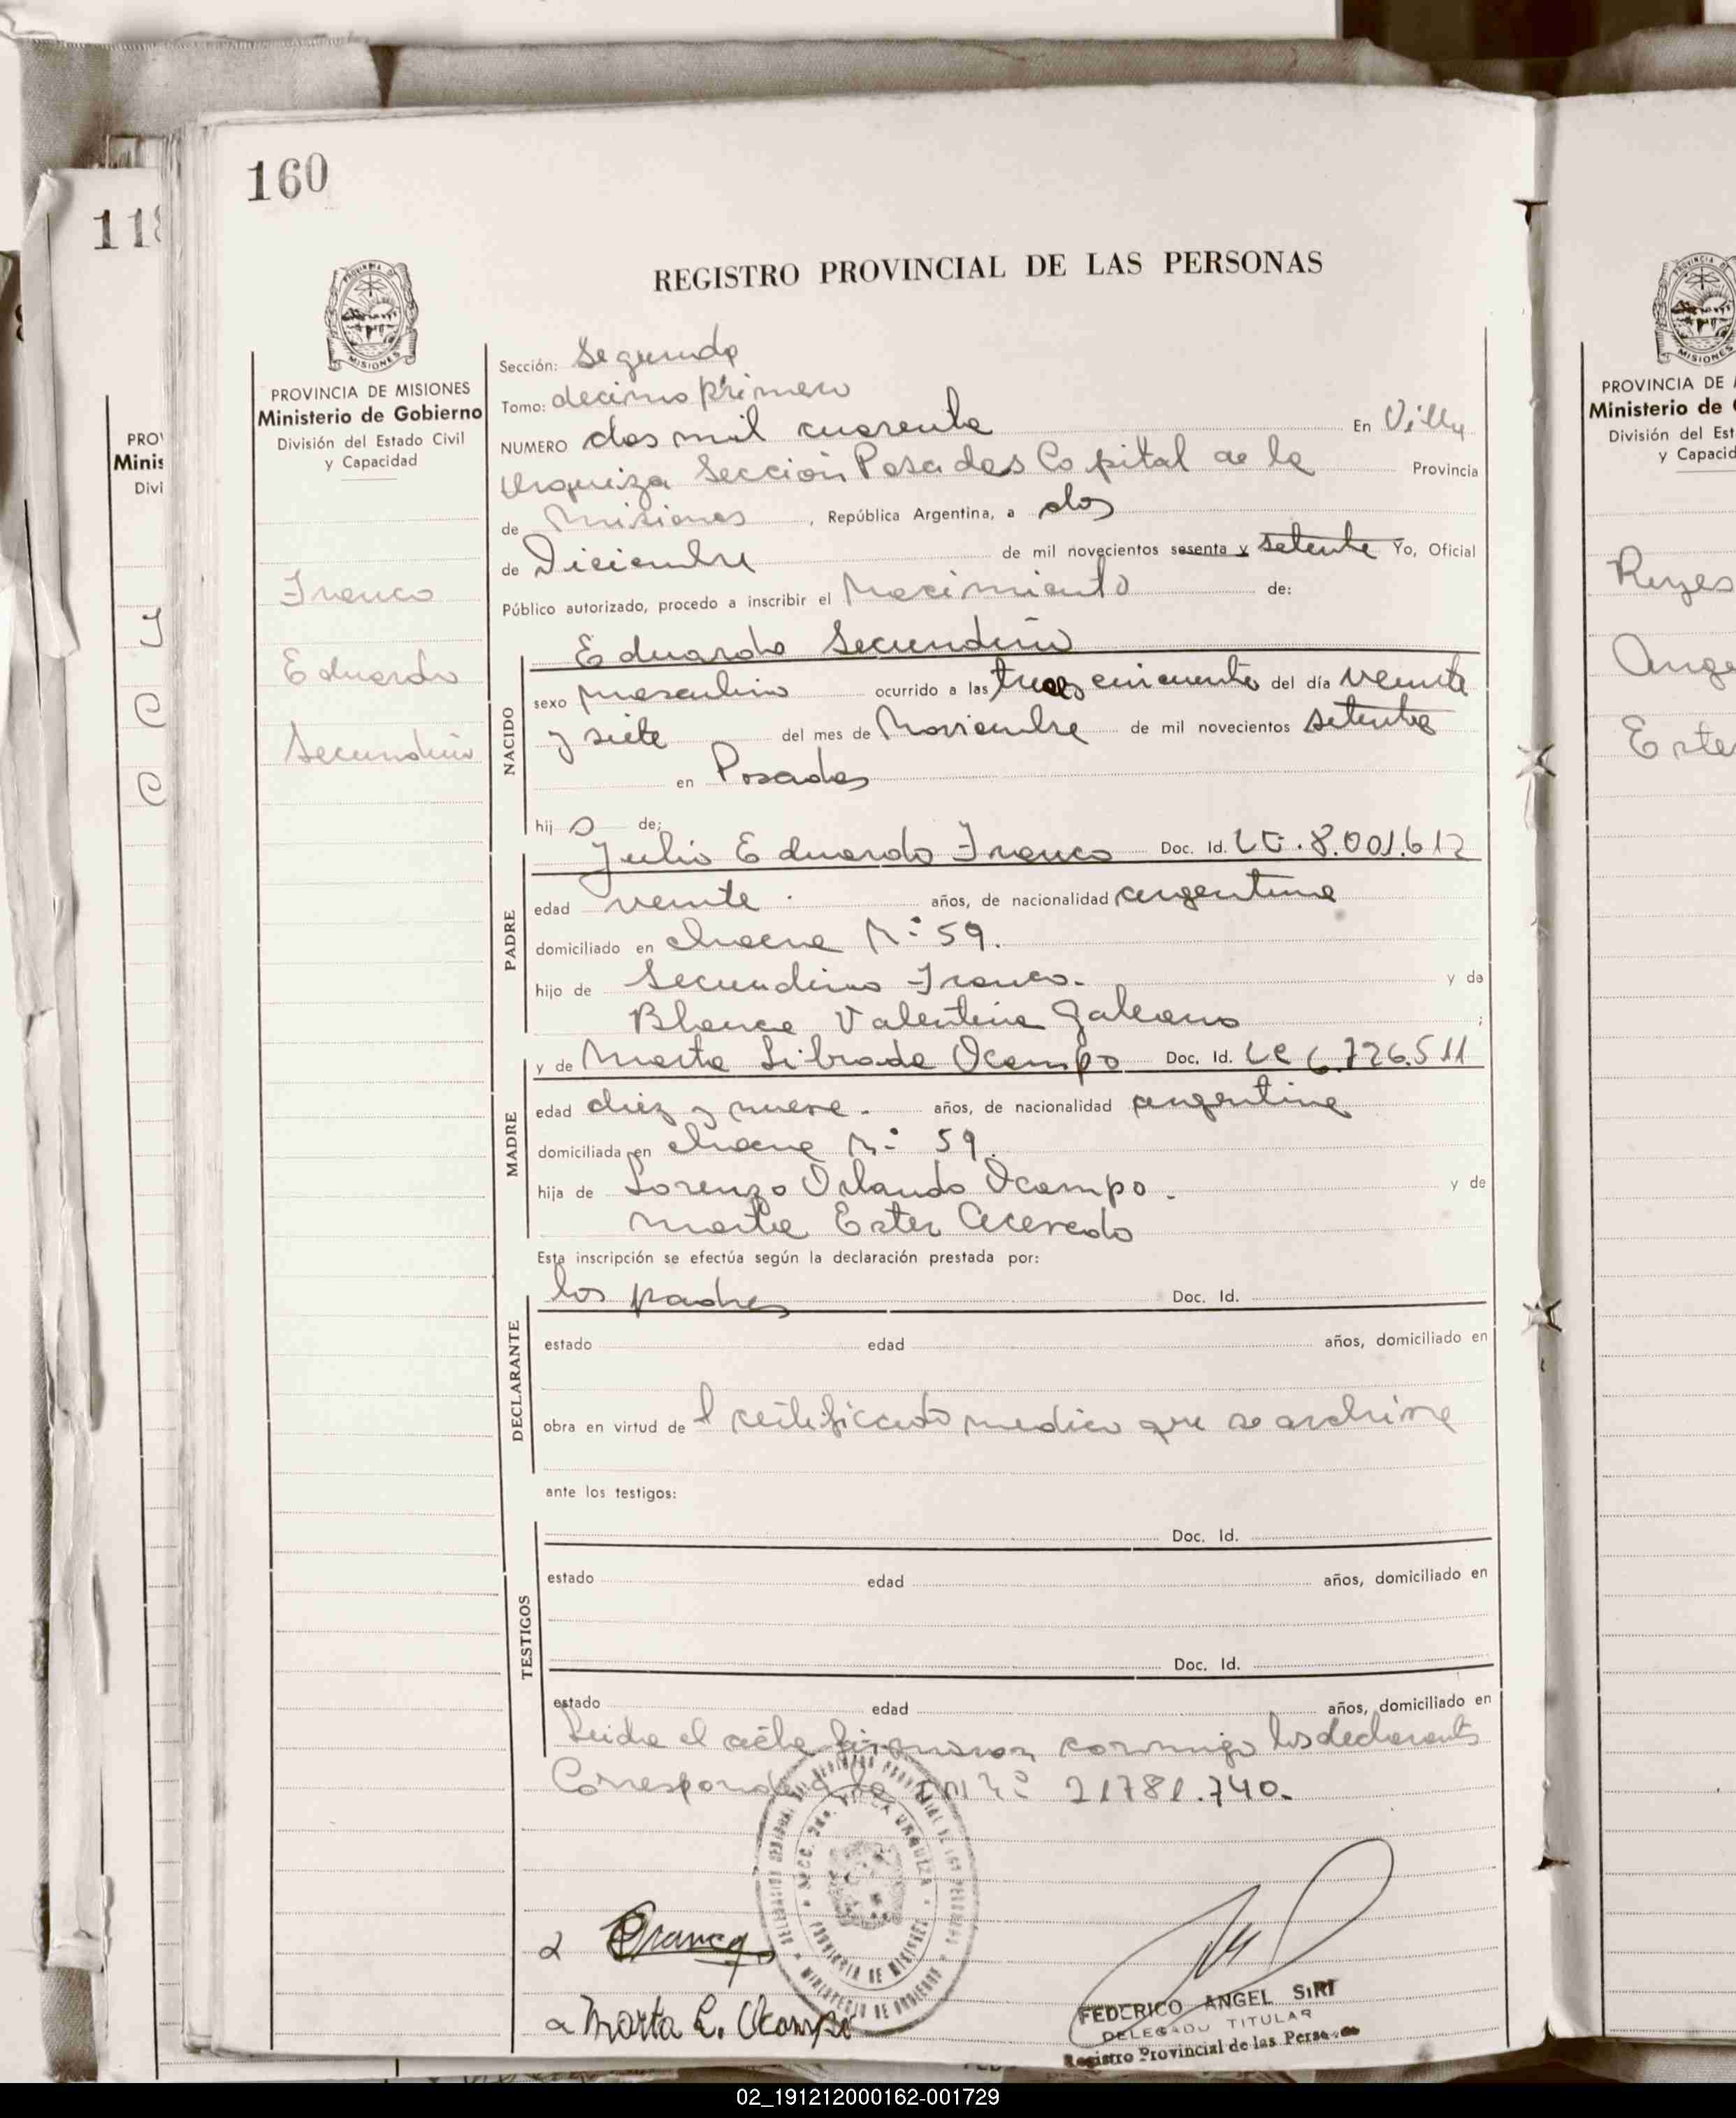 160
118
REGISTRO PROVINCIAL DE LAS PERSONAS
PROVINCIA DE MISIONES
Ministerio de Gobierno
División del Estado Civil
y Capacidad
Franco
Eduardo
Secundino
Sección: Segunda
Tomo: decimo primero
NUMERO dos mil cuarenta En Villa
Urquiza Sección Posadas Capital de la Provincia
de Misiones, República Argentina, a dos
de Diciembre de mil novecientos sesenta y setenta Yo, Oficial
Público autorizado, procedo a inscribir el Nacimiento de:
NACIDO
Eduardo Secundino
sexo masculino ocurrido a las tres cincuenta del día veinte
y siete del mes de Noviembre de mil novecientos setenta
en Posadas
hijo de:
PADRE
Julio Eduardo Franco Doc. Id. LE. 8.001.612
edad veinte años, de nacionalidad argentina
domiciliado en chacra N: 59.
hijo de Secundino Franco. y de
Blanca Valentina Galeano ;
MADRE
y de Marta Librada Ocampo Doc. Id. LC 6.726.511
edad diez y nueve. años, de nacionalidad argentina
domiciliada en chacra N: 59.
hija de Lorenzo Orlando Ocampo. y de
Marta Ester Acevedo
Esta inscripción se efectúa según la declaración prestada por:
DECLARANTE
los padres Doc. Id.
estado edad años, domiciliado en
obra en virtud de l certificado medico que se archiva
ante los testigos:
TESTIGOS
Doc. Id.
estado edad años, domiciliado en
Doc. Id.
estado edad años, domiciliado en
Leida el acta firmaron conmigo los declarants
Corresponde a la DNI N° 21781.740.
SECC. 2da. VILLA URQUIZA
PROVINCIA DE MISIONES
MINISTERIO DE GOBIERNO
a Franco
a Marta L. Ocampo
FEDERICO ANGEL SIRI
DELEGADO TITULAR
Registro Provincial de las Personas
PROV
Minis
Divi
MISIONES
PROVINCIA DE
Ministerio de
División del Est
y Capacid
Reyes
Ange
Ester
02_191212000162-001729